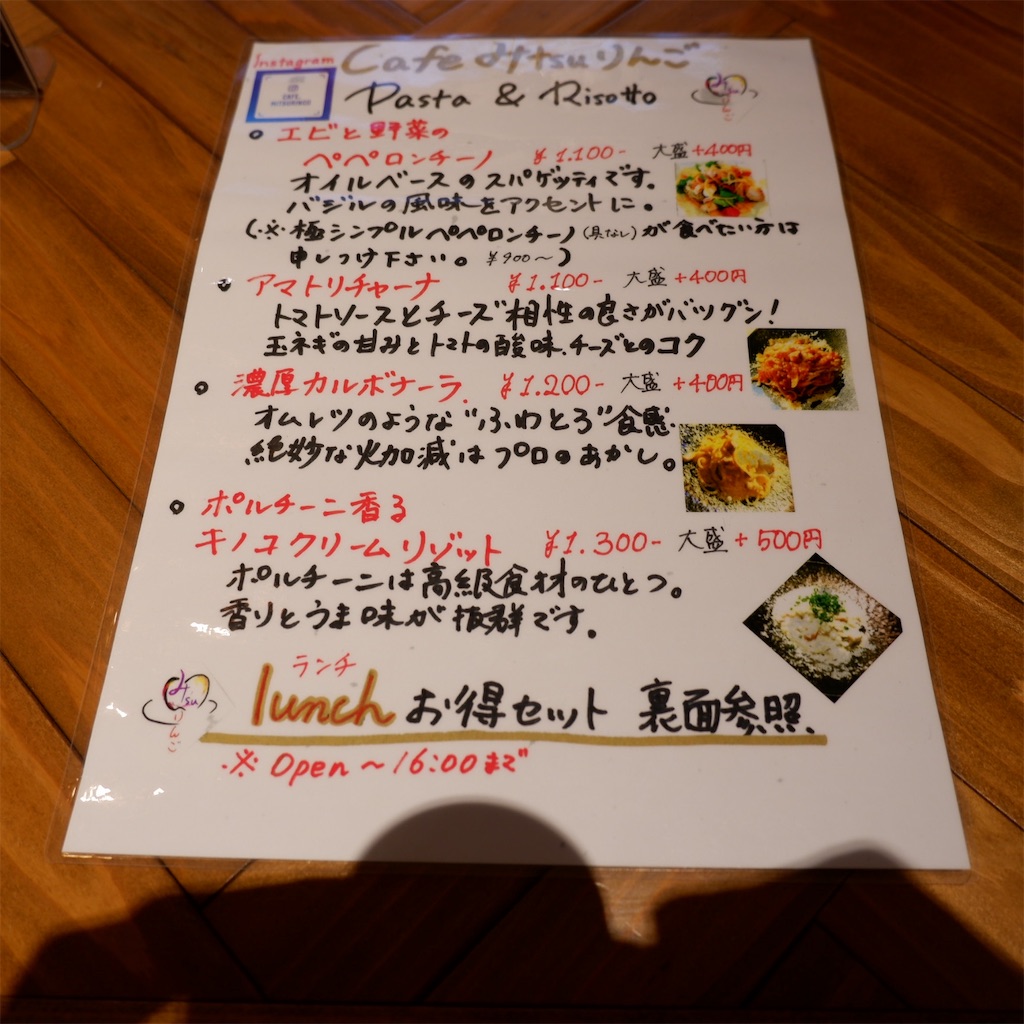 Instagram
Cafe みtsuりんご
Pasta & Risotto
エビと野菜の
ペペロンチーノ ¥1.100- 大盛+400円
オイルベースのスパゲッティです。
バジルの風味をアクセントに。
(※極シンプルペペロンチーノ(具なし)が食べたい方は
申しつけ下さい。¥900~)
アマトリチャーナ ¥1.100- 大盛+400円
トマトソースとチーズ相性の良さがバツグン!
玉ネギの甘みとトマトの酸味、チーズとのコク
濃厚カルボナーラ. ¥1.200- 大盛+400円
オムレツのような"ふわとろ"食感
絶妙な火加減はプロのあかし。
ポルチーニ香る
キノコクリームリゾット ¥1.300- 大盛+500円
ポルチーニは高級食材のひとつ。
香りとうま味が抜群です。
ランチ
lunch お得セット 裏面参照
みtsuりんご
※Open~16:00まで